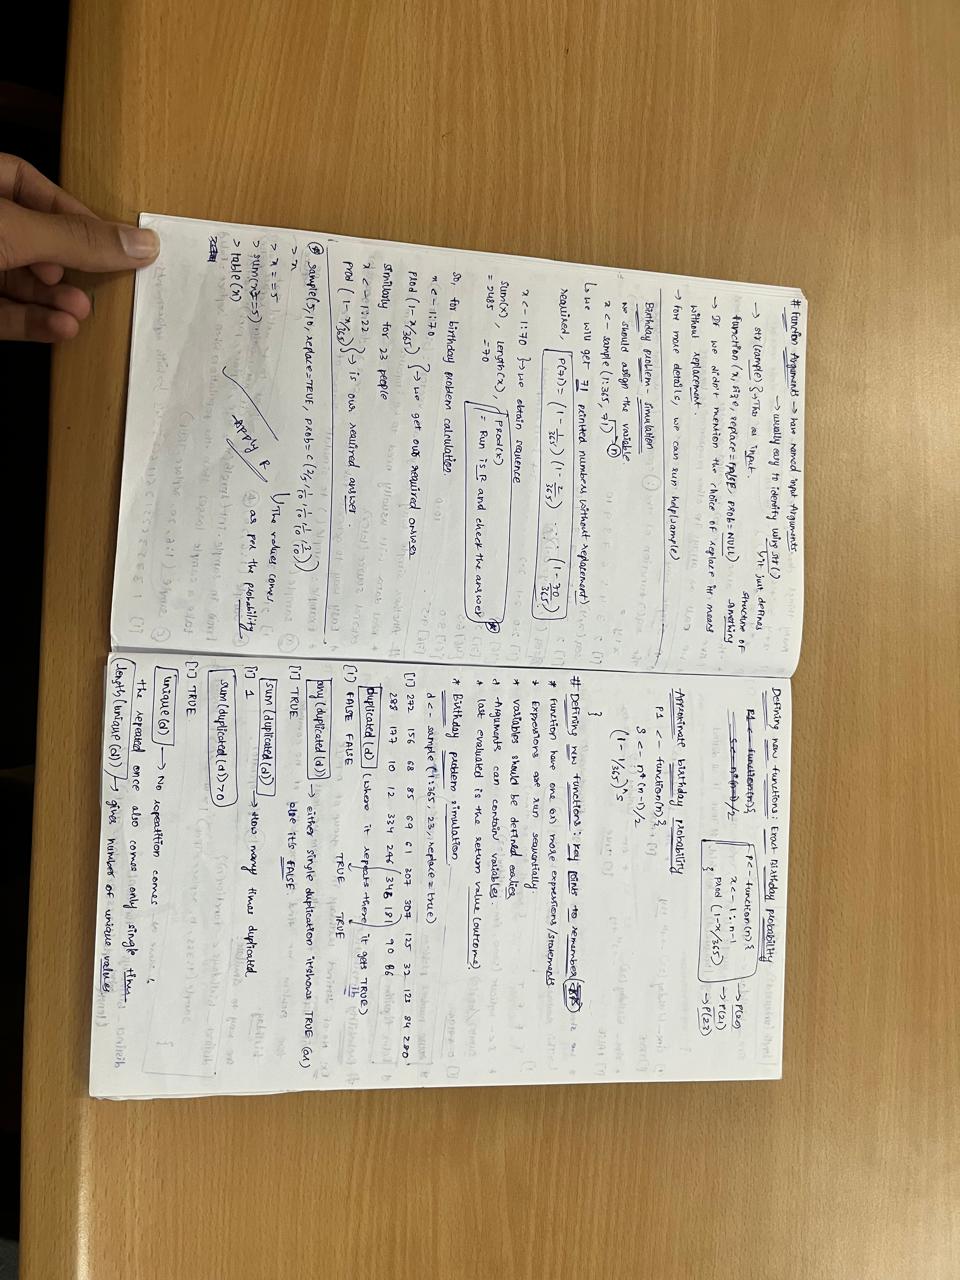 # Function Arguments → have named input Arguments
→ usually easy to identify why str()
→ str(sample) } → The as input.
↳ it just defines structure of Anything
function (x, size, replace = FALSE, prob = NULL)
→ If we didn't mention the choice of replace it means
without replacement.
→ for more details, we can run help(sample)
Birthday problem - simulation
we should assign the variable
x <- sample (1:365, 71) → n
↳ we will get 71 printed numbers without replacement)
required, P(71) = (1 - 1/365) (1 - 2/365) ..... (1 - 70/365)
x <- 1:70 } → we obtain sequence
sum(x), length(x), prod(x)
= 2485 = 70 = Run is R and check the answer
So, for birthday problem calculation
x <- 1:70
prod (1 - x/365) } → we get our required answer
similarly for 23 people
x <- 1:22
prod (1 - x/365) } → is our required answer.
* sample(5, 10, replace=TRUE, prob = c(2/5, 1/10, 1/10, 1/10, 3/10))
> x
↳ The values comes,
as per the probability
> x == 5
> sum(x==5)
> table(x)
Apply R
Defining new functions: Exact Birthday probability
P1 <- function(n){
S <- n*(n-1)/2
P <- function(n){
x <- 1:n-1
prod (1-x/365)
}
→ P(20)
→ P(21)
→ P(23)
Approximate birthday probability
P1 <- function(n){
S <- n*(n-1)/2
(1 - 1/365)^S
}
# Defining new functions: key points to remember
* Function have one or more expressions/statements
* Expressions are run sequentially
* variables should be defined earlier
* Arguments can contain variables.
* last evaluated is the return value (outcome)
* Birthday problem simulation
d <- sample (1:365, 23, replace = true)
[1] 272 156 68 85 69 61 207 307 125 32 123 84 280
288 177 10 12 334 246 348 181 90 86
duplicated (d) (where it repeats there it gets TRUE)
[1] FALSE FALSE TRUE TRUE
any (duplicated (d)) → either single duplication it shows TRUE (or)
[1] TRUE else it's FALSE
sum (duplicated (d)) → How many times duplicated
[1] 1
sum (duplicated (d)) > 0
[1] TRUE
unique (d) → No repeatition comes
the repeated once also comes only single time
length (unique (d)) → gives number of unique values